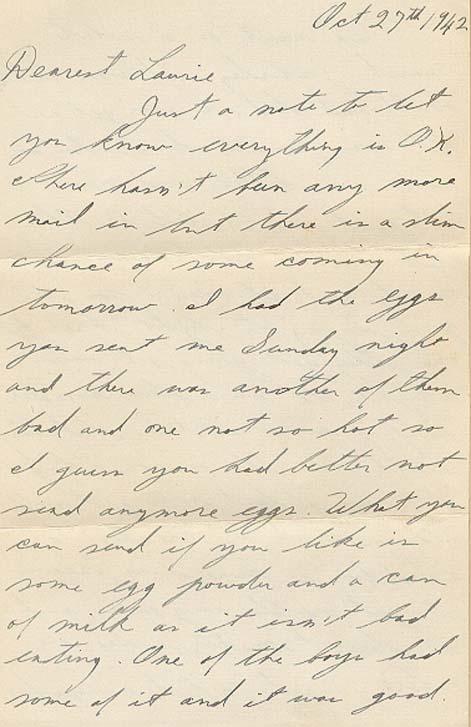 Oct 27th/1942
Dearest Laurie
Just a note to let
you know everything is O.K.
There hasn't been any more
mail in but there is a slim
chance of some coming in
tomorrow. I had the eggs
you sent me Sunday night
and there was another of them
bad and one not so hot so
I guess you had better not
send anymore eggs. What you
can send if you like is
some egg powder and a can
of milk as it isn't bad
eating. One of the boys had
some of it and it was good.